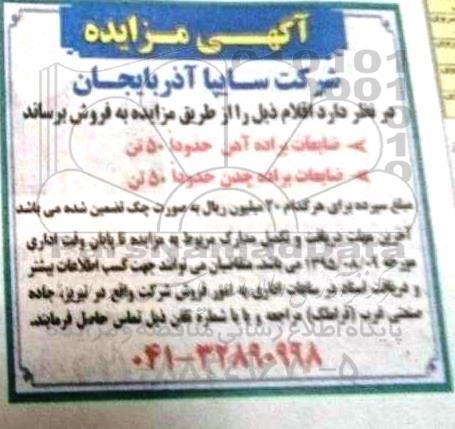 آگهی مزایده
شرکت سایپا آذربایجان
در نظر دارد اقلام ذیل را از طریق مزایده به فروش برساند
ضایعات براده آهن حدوداً ۵۰ تن
ضایعات براده چدن حدوداً ۵۰ تن
مبلغ سپرده برای هرکدام ۲۰ میلیون ریال به صورت چک تضمین شده می باشد
آخرین مهلت دریافت و تکمیل مدارک مربوط به مزایده تا پایان وقت اداری
مورخه می باشد. متقاضیان می توانند جهت کسب اطلاعات بیشتر
و دریافت اسناد در ساعات اداری به دفتر فروش شرکت واقع در تبریز، جاده
صنعتی غرب (قراملک) مراجعه و یا با شماره تلفن ذیل تماس حاصل فرمایند.
۰۴۱-۳۲۸۹۰۹۹۸